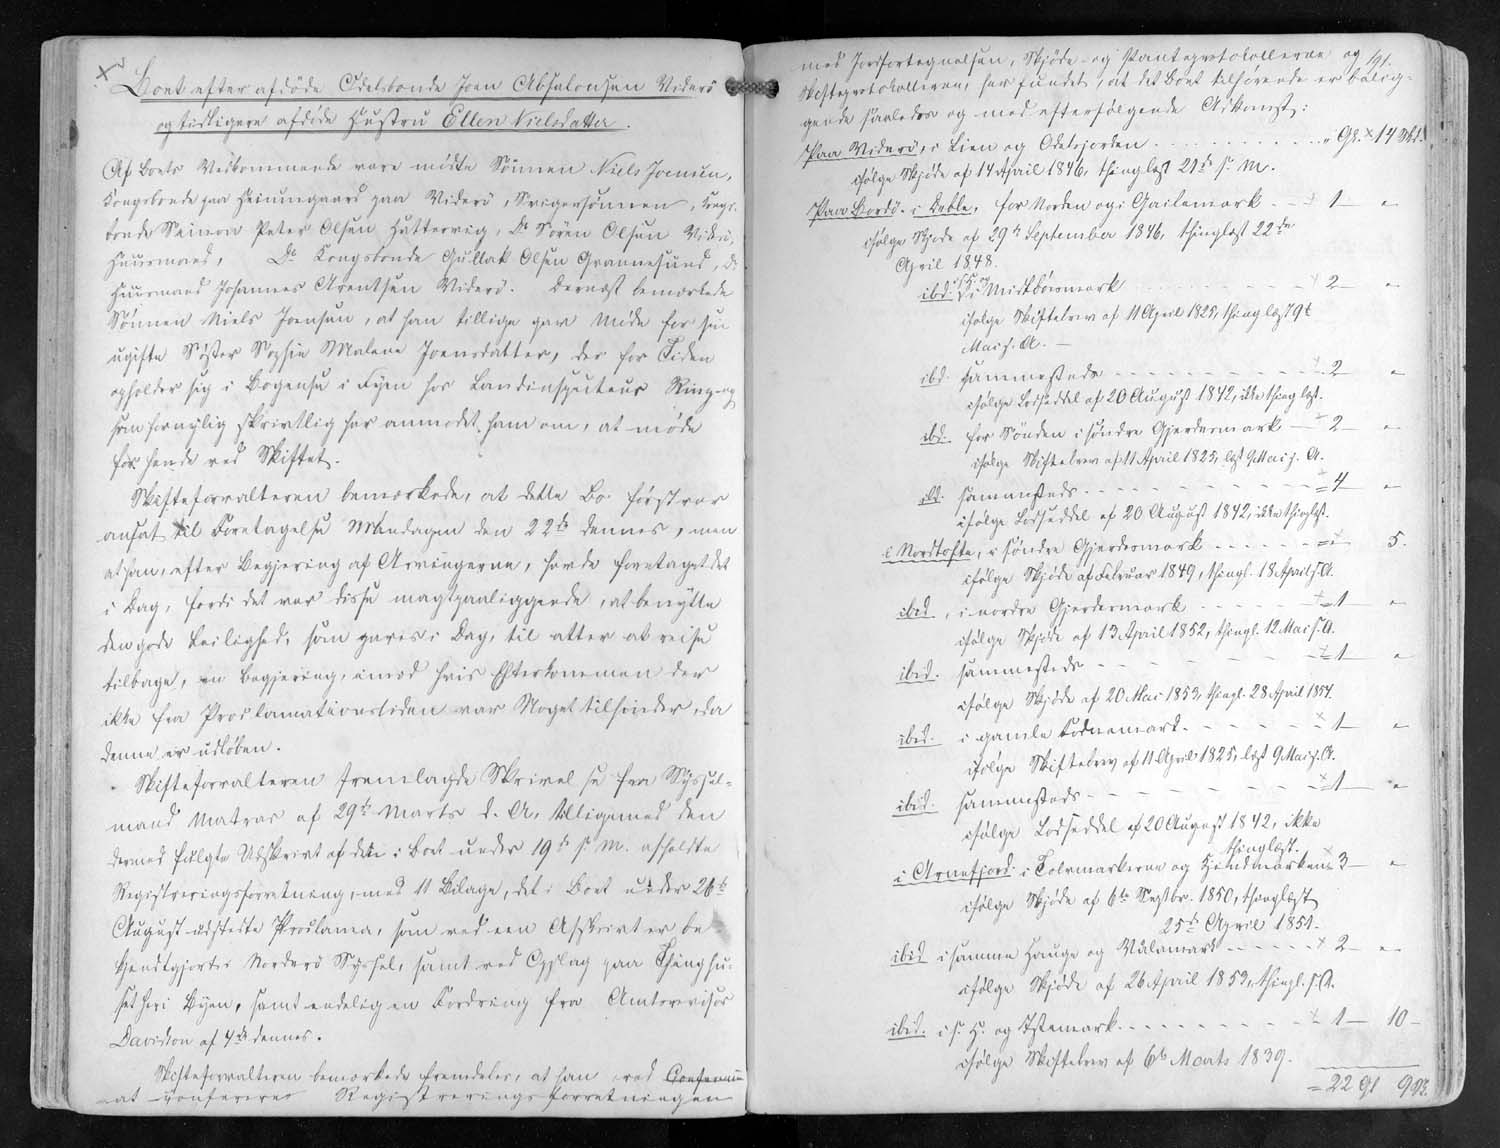 Boet efter afdøde Odelsbonde Joen Absalonsen Viderø
og tidligere afdøde Hustru Ellen Nielsdatter.
Af Boets Vedkommende vare mødte Sønnen Niels Joensen,
Kongsbonde paa Heinungaard paa Viderø, Svigersønnen, Kongs-
bonde Saimon Peter Olsen Hattervig, Do Søren Olsen Viderø,
Huusmand, Do Kongsbonde Gullak Olsen Grannesund, Do
Huusmand Johannes Arentsen Viderø. Dernæst bemærkede
Sønnen Niels Joensen, at han tillige gav Møde for sin
ugifte Søster Sophie Malene Joensdatter, der for Tiden
opholder sig i Bogense i Fyen hos Landinspecteur Ring og
som fornylig skriftlig har anmodet ham om, at møde
for hende ved Skiftet.
Skifteforvalteren bemærkede, at dette Bo først var
ansat til Foretagelse Mandagen den 22de dennes, men
at han, efter Begjering af Arvingerne, havde foretaget det
i Dag, fordi det var disse magtpaaliggende, at benytte
den gode Leilighed, som gaves i Dag, til atter at reise
tilbage, en Begjering, imod hvis Efterkommen der
ikke fra Proclamationstiden var Noget tilhinder, da
denne er udløben.
Skifteforvalteren fremlagde Skrivelse fra Syssel-
mand Matras af 29de Marts d. A. tilligemed den
dermed fulgte Udskrivt af den i Boet under 19de s. M. afholdte
Registreringsforretning, med 11 Bilage, det i Boet under 26de
August udstedte Proclama, som ved een Afskrivt er be-
kjendtgjort i Norderø Syssel, samt ved Opslag paa Thinghu-
set her i Byen, samt endelig en Fordring fra Amtsrevisor
Davidson af 4de dennes.
Skifteforvalteren bemærkede fremdeles, at han ved
at conferere Registreringsforretningen
191.
med Jordfortegnelsen, Skjøde- og Panteprotokollerne og
Skifteprotokollerne, har fundet, at det Boet tilhørende er belig-
gende saaledes og med efterfølgende Adkomst:
Paa Viderø, i Lien og Odelsjorden . . . . . . . . . . " Gl. × 14 Skd.
ifølge Skjøde af 14 April 1846, thinglæst 21de s. M.
Paa Bordø i Deble, for Norden og i Gailemark - - × 1 — "
ifølge Skjøde af 29de September 1846, thinglæst 22de
April 1848.
ibd. i Midtbøismark - - - - - × 2 — "
ifølge Skiftebrev af 11 April 1825, thinglæst 9de
Mai s. A. —
ibd. sammesteds - - - - - - × 2 "
ifølge Lodseddel af 20 August 1842, ikke thinglæst.
ibd. for Sønden i søndre Gjerdesmark - × 2 — "
ifølge Skiftebrev af 11 April 1825, læst 9 Mai s. A.
ibd. sammesteds - - - - - - × 4 "
ifølge Lodseddel af 20 August 1842, ikke thinglæst.
i Nordtofte, i søndre Gjerdesmark - - - - - × " 5.
ifølge Skjøde af Februar 1849, thingl. 18 April s. A.
ibid., i nordre Gjerdesmark - - - - - × 1 — "
ifølge Skjøde af 13 April 1852, thingl. 12 Mai s. A.
ibid. sammesteds - - - - - - × 1 — "
ifølge Skjøde af 20 Mai 1853, thingl. 28 April 1854.
ibid. i gamle - - - - - × 1 — "
ifølge Skiftebrev af 11 April 1825, læst 9 Mai s. A.
ibid. sammesteds - - - - - - × 1 — "
ifølge Lodseddel af 20 August 1842, ikke
thinglæst.
i Arnefjord i Tolvmarkerne og - × 3 — "
ifølge Skjøde af 6te Septbr. 1850, thinglæst
25de April 1851.
ibid i samme Hauge og Valamark - - - - - × 2 — "
ifølge Skjøde af 26 April 1853, thingl. s. A.
ibid. i s. H. og - - - - - × 1 — 10 —
ifølge Skiftebrev af 6te Marts 1839.
= 22 Gl 9 Sk.